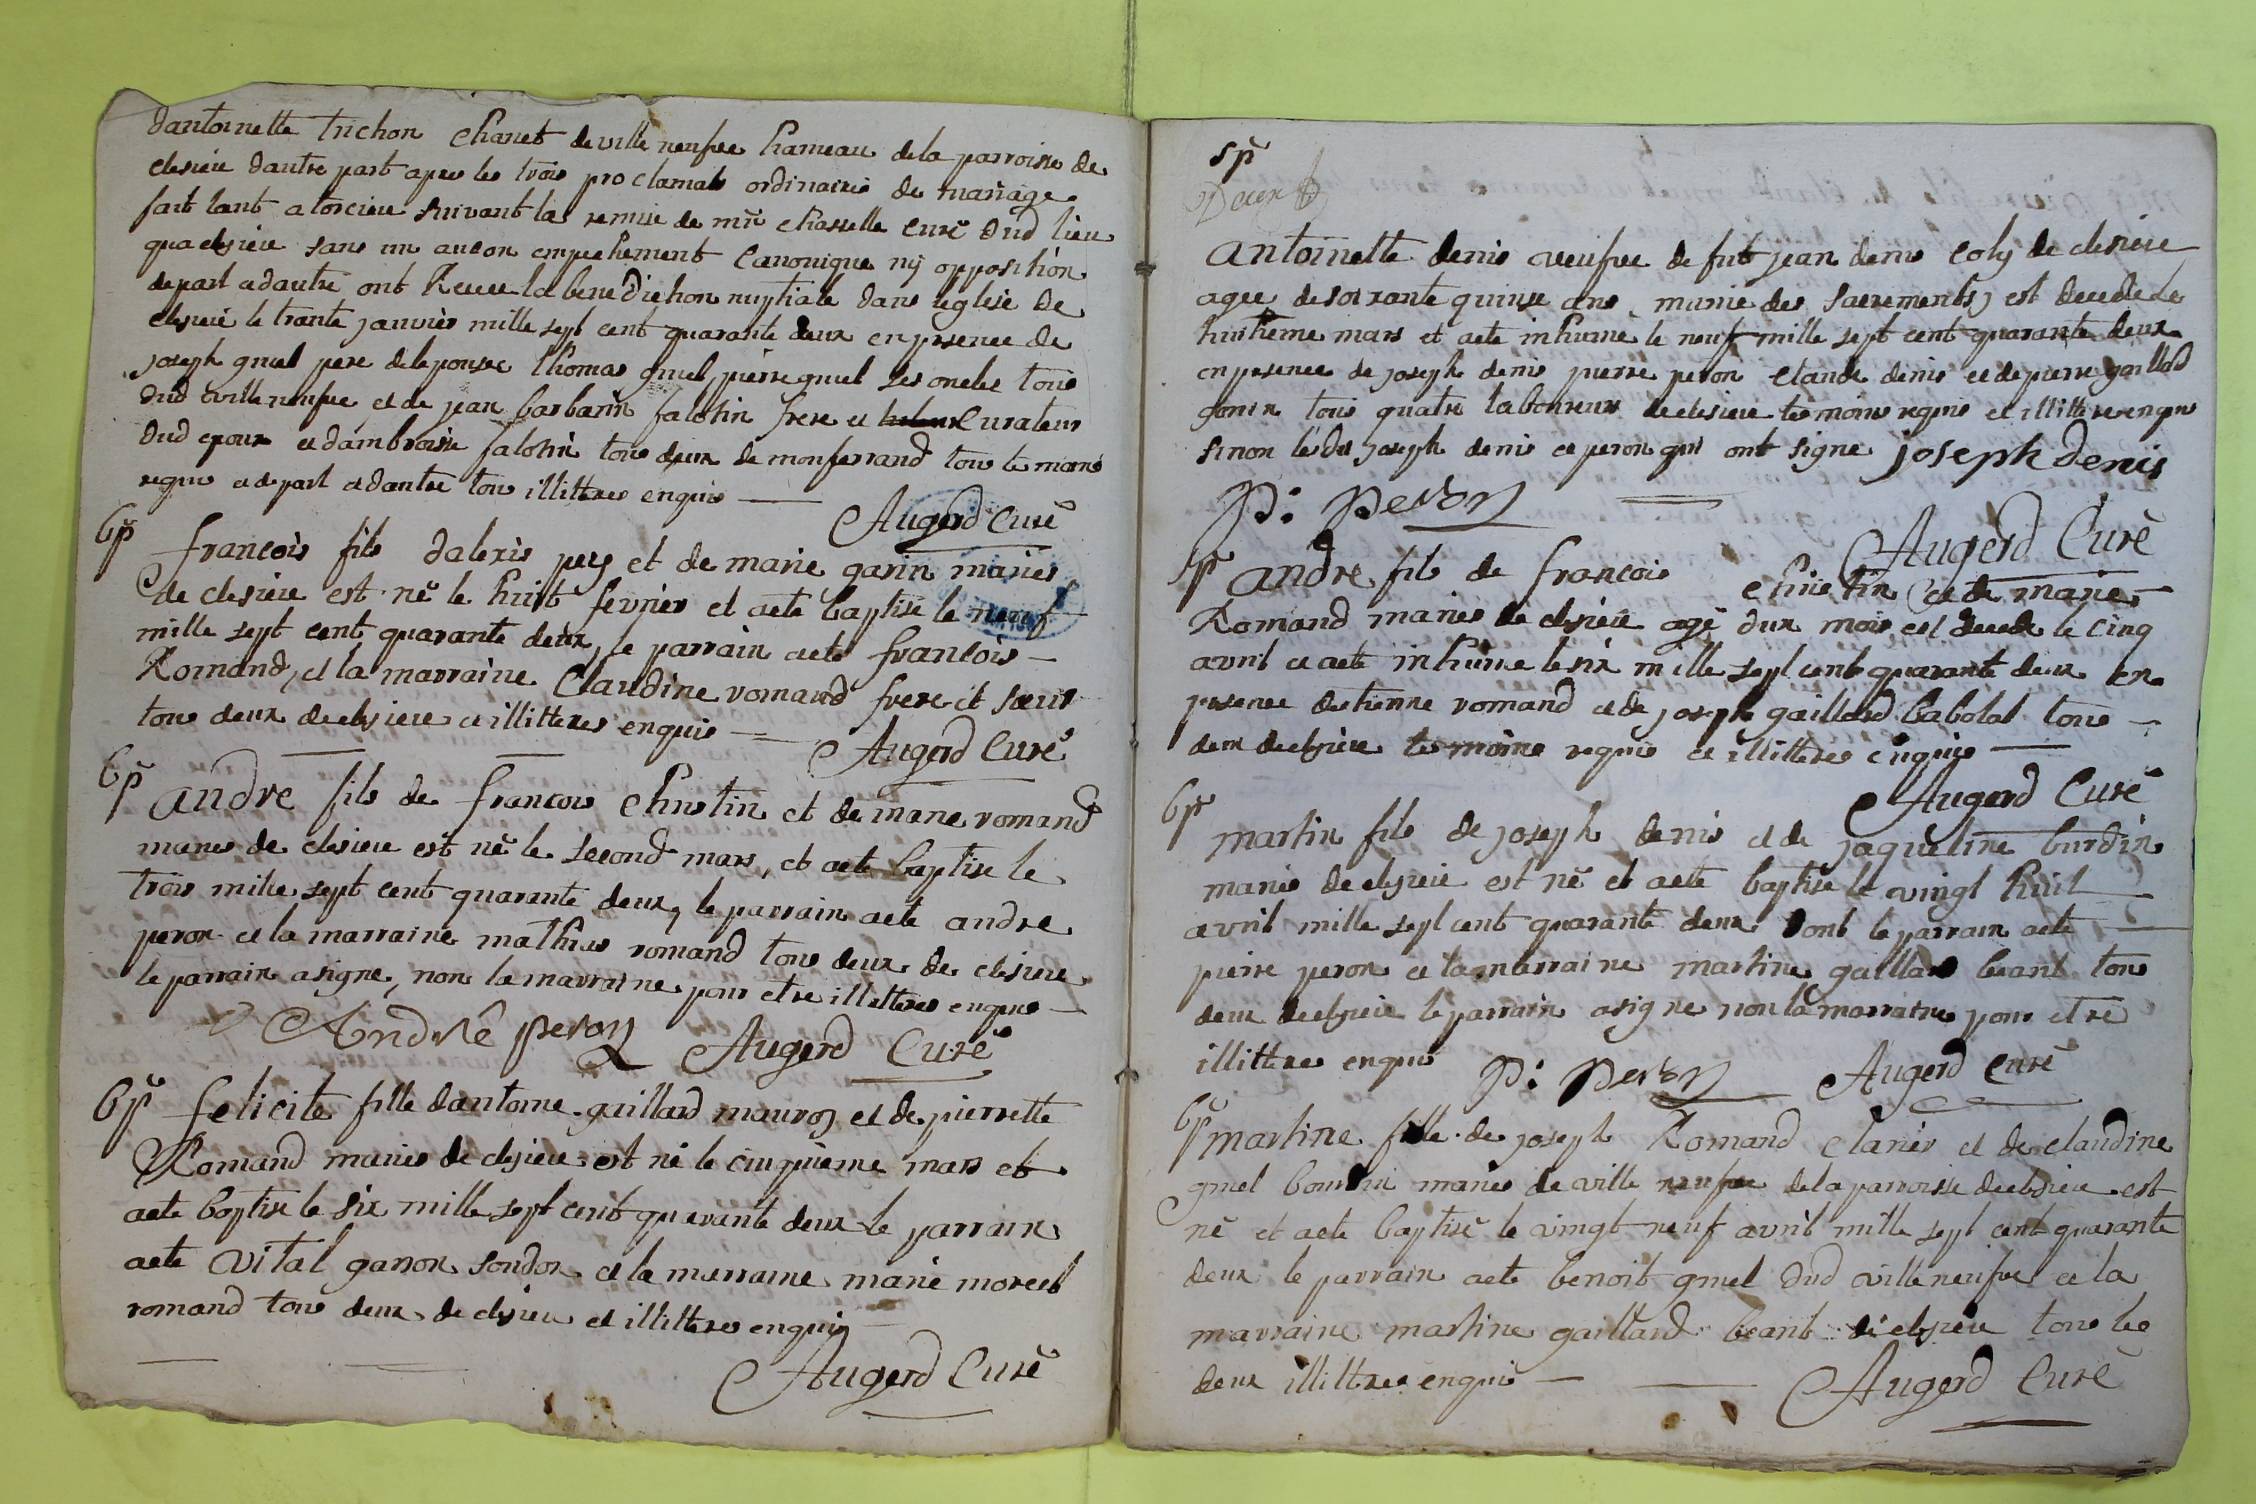 dantoinette trichon Chanet de ville neufve hameau de la parroisse de
clesieu dautre part apres les trois proclamats ordinaires de mariage
fait tant a torcieu suivant la remise de mre chasselle curé dud lieu
qua clesieu sans un aucon empechement Canonique ny opposition
depart et dautre ont Receu la benediction nuptiale dans leglise de
clesieu le trante janvier mille sept cent quarante deux en presence de
joseph gruel pere de lepouse thomas gruel, pierre gruel ses oncles tous
dud ville neufve et de jean barbarin jalotin frere et Curateur
dud epoux et dambroise jalotin tous deux de monferrand tous temoins
requis et depart et dautre tous illitteres enquis
Augerd Curé
bp françois fils dalexis pey et de marie garin mariés
de clesieu est né le huit fevrier et aeté baptisé le neuf
mille sept cent quarante deux, le parrain aeté françois
Romand, et la marraine Claudine romand frere et sœur
tous deux de clesieu et illitteres enquis
Augerd Curé
bp andré fils de françois Chrietin et de marie romand
maries de clesieu est né le second mars, et aeté baptisé le
trois mille sept cent quarante deux, le parrain aeté andre
peron et la marraine mathieu romand tous deux de clesieu
le parrain asigné, non la marraine pour etre illitteres enquis
André peron Augerd Curé
bp felicité fille dantoine gaillard mauron et de pierrette
Romand mariés de clesieu est né le cinquieme mars et
aeté baptisé le six mille sept cent quarante deux le parrain
aeté vital ganon sondon et la marraine marie morest
romand tous deux de clesieu et illitteres enquis
Augerd Curé
sp
antoinette denis veufve de fut jean denis coly de clesieu
agee de soixante quinze ans munie des sacrements, est decedé le
huitieme mars et aeté inhumé le neuf mille sept cent quarante deux
en presence de joseph denis pierre peron claude denis et de pierre gaillard
gonin tous quatre laboureurs de clesieu temoins requis et illittere enquis
sinon lesd joseph denis et peron qui ont signé joseph denis
P: peron
Augerd Curé
sp andré fils de françois Chrietin et de marie
Romand maries de clesieu agé dun mois est decedé le cinq
avril et aeté inhumé le six mille sept cent quarante deux en
presence detienne romand et de joseph gaillard babolat tous
deux de clesieu temoins requis et illitteres enquis
Augerd Curé
bp martin fils de joseph denis et de jaqueline burdin
mariés de clesieu est né et aeté baptisé le vingt huit
avril mille sept cent quarante deux dont le parrain aeté
pierre peron et la marraine martine gaillard beant tous
deux de clesieu le parrain asigné non la marraine pour etre
illitteres enquis P: peron Augerd Curé
bp martine fille de joseph Romand clanier et de claudine
gruel mariés de ville neufve de la parroisse de clesieu est
né et aeté baptisé le vingt neuf avril mille sept cent quarante
deux le parrain aeté benoit gruel dud ville neufve et la
marraine martine gaillard beant de clesieu tous les
deux illitteres enquis
Augerd Curé